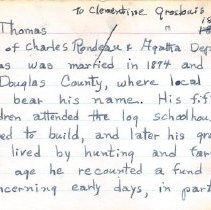 To Clementine Grosbois
18
Thomas
of Charles Rondeau & Agatha Dep
as was married in 1874 and
Douglas County, where local
bear his name. His fif
dren attended the log schoolhou
ed to build, and later his gr
lived by hunting and far
age he recounted a fund
ncerning early days, in part